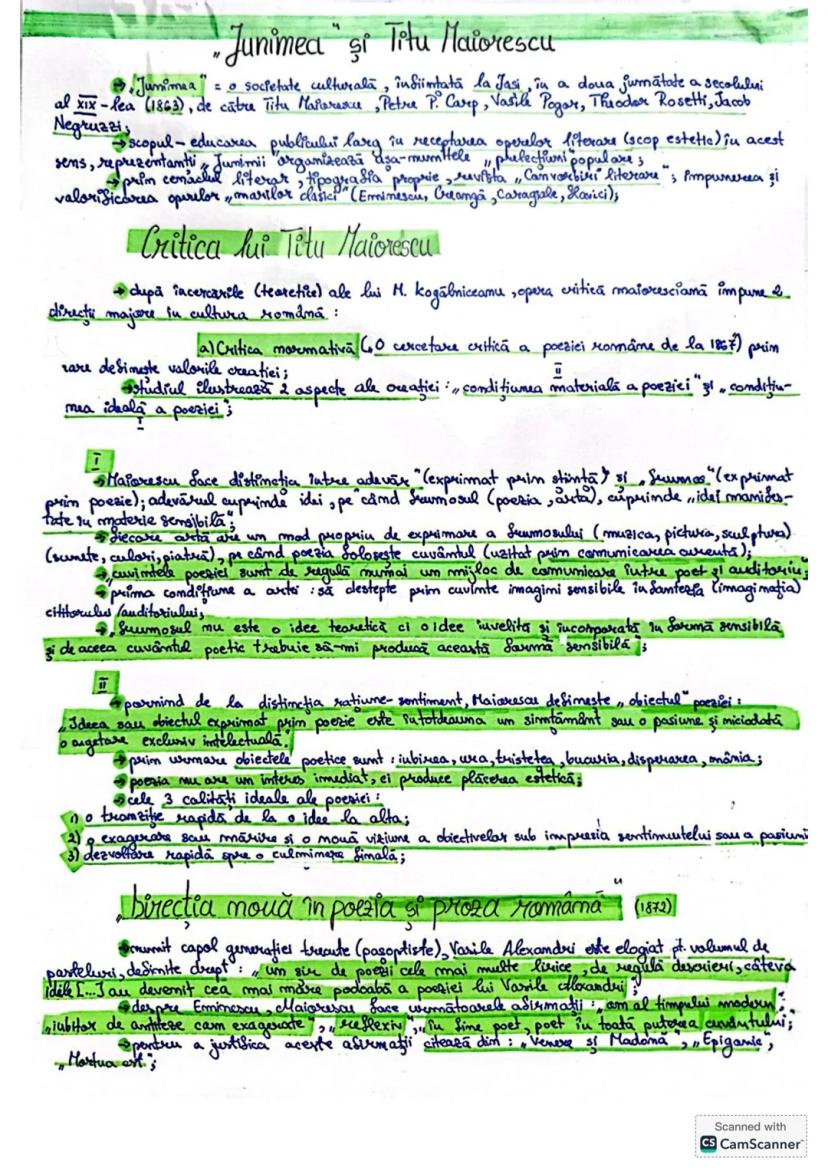 „Junimea" și Titu Maiorescu
→„Junimea" = o societate culturală, înființată la Iași, în a doua jumătate a secolului
al XIX-lea (1863), de către Titu Maiorescu, Petre P. Carp, Vasile Pogor, Theodor Rosetti, Iacob
Negruzzi;
→scopul - educarea publicului larg în receptarea operelor literare (scop estetic) în acest
sens, reprezentanții „Junimii" organizează așa-numitele „prelecțiuni populare;
→prin cenaclul literar, tipografia proprie, revista „Convorbiri literare"; impunerea și
valorificarea operelor „marilor clasici" (Eminescu, Creangă, Caragiale, Slavici);
Critica lui Titu Maiorescu
→după încercările (teoretice) ale lui M. Kogălniceanu, opera critică maioresciană impune 2
direcții majore în cultura română:
a) Critica normativă („O cercetare critică a poeziei române de la 1867") prin
care definește valorile creației;
II
→studiul ilustrează 2 aspecte ale creației: „condițiunea materială a poeziei" și „condițiu-
nea ideală a poeziei";
I
I
→Maiorescu face distincția între adevăr "(exprimat prin știință) și „frumos" (exprimat
prin poezie); adevărul cuprinde idei, pe când frumosul (poezia, arta), cuprinde „idei manifes-
tate în materie sensibilă";
→fiecare artă are un mod propriu de exprimare a frumosului (muzica, pictura, sculptura)
(sunete, culori, piatră), pe când poezia folosește cuvântul (uzitat prin comunicarea curentă);
→„cuvintele poeziei sunt de regulă numai un mijloc de comunicare între poet și auditoriu;
→prima condițiune a artei: să deștepte prin cuvinte imagini sensibile în fantezia (imaginația)
cititorului/auditoriului;
→„Frumosul nu este o idee teoretică ci o idee învelită și încorporată în formă sensibilă
și de aceea cuvântul poetic trebuie să-mi producă această formă sensibilă";
II
→pornind de la distincția rațiune-sentiment, Maiorescu definește „obiectul" poeziei:
„Ideea sau obiectul exprimat prin poezie este întotdeauna un simțământ sau o pasiune și niciodată
o cugetare exclusiv intelectuală."
→prin urmare obiectele poetice sunt: iubirea, ura, tristețea, bucuria, disperarea, mânia;
→poezia nu are un interes imediat, ci produce plăcerea estetică;
→cele 3 calități ideale ale poeziei:
1) o tranziție rapidă de la o idee la alta;
2) o exagerare sau mărire și o nouă viziune a obiectivelor sub impresia sentimentelor sau a pasiuni
3) dezvoltare rapidă spre o culminare finală;
„Direcția nouă în poezia și proza română" (1872)
→numit capol generației trecute (pașoptiste), Vasile Alexandri este elogiat pt. volumul de
pasteluri, definite drept: „un șir de poezii cele mai multe lirice, de regulă descrieri, câteva
idile [...] au devenit cea mai mare podoabă a poeziei lui Vasile Alexandri";
→despre Eminescu, Maiorescu face următoarele afirmații: „om al timpului modern",
„iubitor de antiteze cam exagerate", „reflexiv", „în fine poet, poet în toată puterea cuvântului;
→pentru a justifica aceste afirmații citează din: „Venere și Madonă", „Epigonii",
„Mortua est";
Scanned with
CS CamScanner